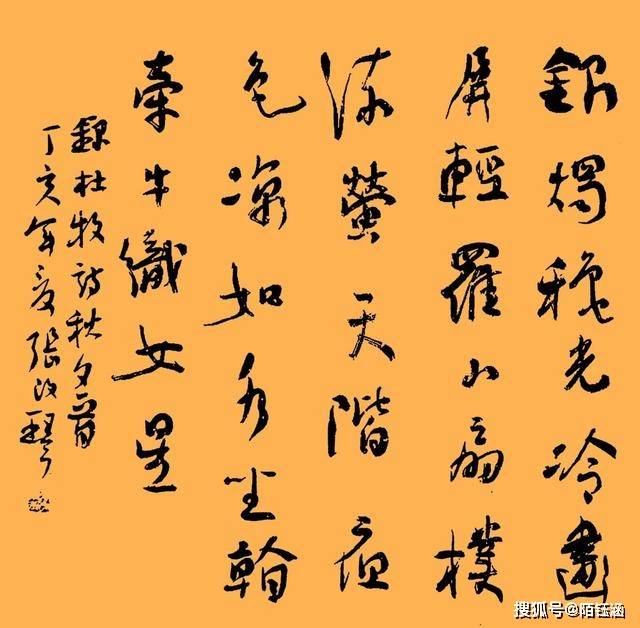 銀燭穐光冷畫
屏輕羅小扇樸
流螢天階夜
色涼如水坐看
牽牛織女星
錄杜牧詩秋夕一首
丁亥年夏張改琴
搜狐号@陌钰涵